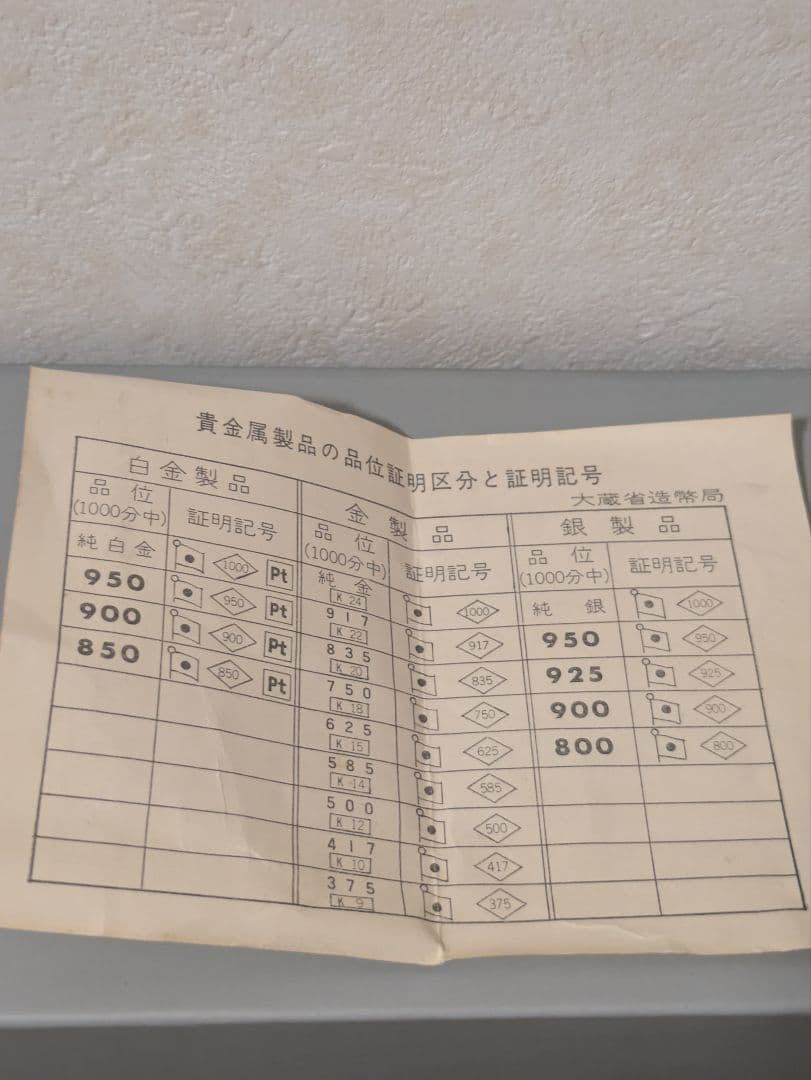 貴金属製品の品位証明区分と証明記号
大蔵省造幣局
白金製品
品位
(1000分中)
証明記号
純白金
1000 Pt
950
950 Pt
900
900 Pt
850
850 Pt
金製品
品位
(1000分中)
証明記号
純金
K 24
1000
917
K 22
917
835
K 20
835
750
K 18
750
625
K 15
625
585
K 14
585
500
K 12
500
417
K 10
417
375
K 9
375
銀製品
品位
(1000分中)
証明記号
純銀
1000
950
950
925
925
900
900
800
800